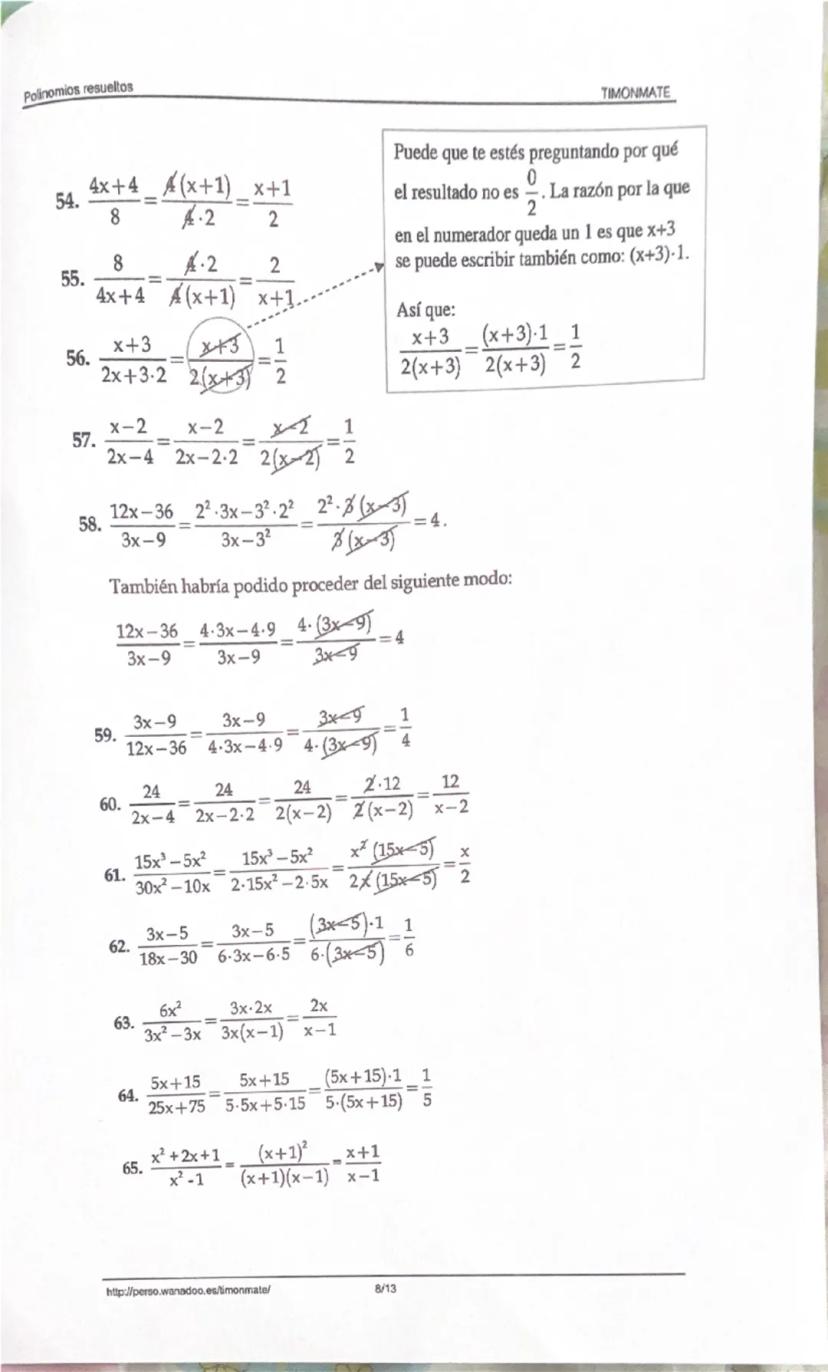 Polinomios resueltos
TIMONMATE
54. (4x+4)/8 = (4(x+1))/(4·2) = (x+1)/2
55. 8/(4x+4) = (4·2)/(4(x+1)) = 2/(x+1)
56. (x+3)/(2x+3·2) = (x+3)/(2(x+3)) = 1/2
Puede que te estés preguntando por qué
el resultado no es 0/2. La razón por la que
en el numerador queda un 1 es que x+3
se puede escribir también como: (x+3)·1.
Así que:
(x+3)/(2(x+3)) = ((x+3)·1)/(2(x+3)) = 1/2
57. (x−2)/(2x−4) = (x−2)/(2x−2·2) = (x−2)/(2(x−2)) = 1/2
58. (12x−36)/(3x−9) = (2²·3x−3²·2²)/(3x−3²) = (2²·3(x−3))/(3(x−3)) = 4.
También habría podido proceder del siguiente modo:
(12x−36)/(3x−9) = (4·3x−4·9)/(3x−9) = (4·(3x−9))/(3x−9) = 4
59. (3x−9)/(12x−36) = (3x−9)/(4·3x−4·9) = (3x−9)/(4·(3x−9)) = 1/4
60. 24/(2x−4) = 24/(2x−2·2) = 24/(2(x−2)) = (2·12)/(2(x−2)) = 12/(x−2)
61. (15x³−5x²)/(30x²−10x) = (15x³−5x²)/(2·15x²−2·5x) = (x²(15x−5))/(2x(15x−5)) = x/2
62. (3x−5)/(18x−30) = (3x−5)/(6·3x−6·5) = ((3x−5)·1)/(6·(3x−5)) = 1/6
63. 6x²/(3x²−3x) = (3x·2x)/(3x(x−1)) = 2x/(x−1)
64. (5x+15)/(25x+75) = (5x+15)/(5·5x+5·15) = ((5x+15)·1)/(5·(5x+15)) = 1/5
65. (x²+2x+1)/(x²-1) = (x+1)²/((x+1)(x−1)) = (x+1)/(x−1)
http://perso.wanadoo.es/timonmate/
8/13